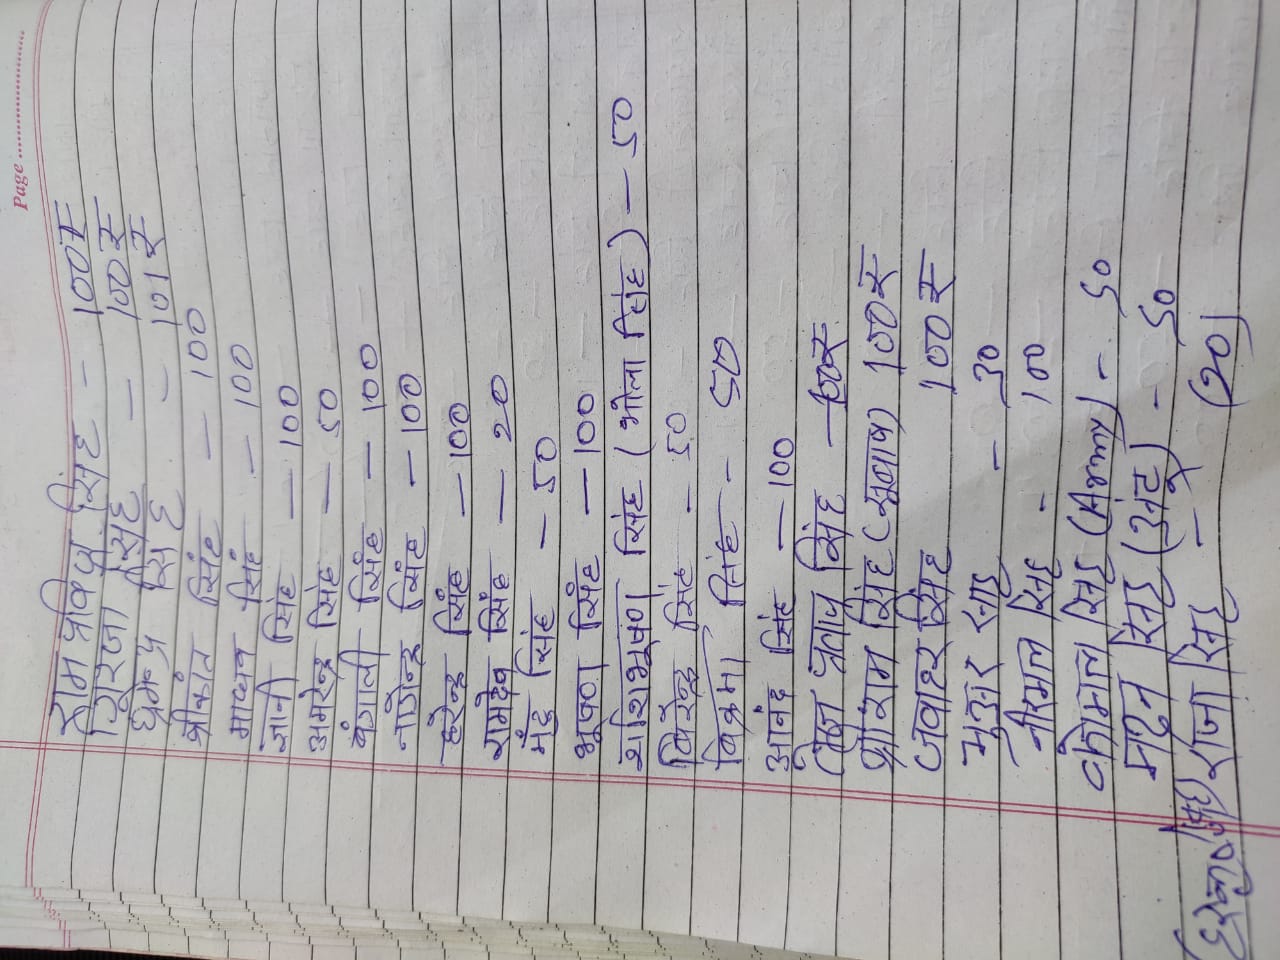 Page
राम प्रविण सिंह - 100₹
गिरजा सिंह - 100₹
धर्मेन्द्र सिंह - 101₹
श्रीकांत सिंह - 100
माधव सिंह - 100
ज्ञानी सिंह - 100
अमरेन्द्र सिंह - 50
बंगाली सिंह - 100
नागेन्द्र सिंह - 100
हरेन्द्र सिंह - 100
रामदेव सिंह - 20
मंटु सिंह - 50
भूषण सिंह - 100
शशिभूषण सिंह (भोला सिंह) - 50
बिरेन्द्र सिंह - 50
बिक्रमा सिंह - 50
आनंद सिंह - 100
तेज प्रताप सिंह - 100₹
श्रीराम सिंह (सूबाष) 100₹
जवाहर सिंह 100₹
मुअर साह - 30
नीरमल सिंह - 100
कोमल सिंह (Army) - 50
मदन सिंह (अंटू) - 50
राजा सिंह - (20)